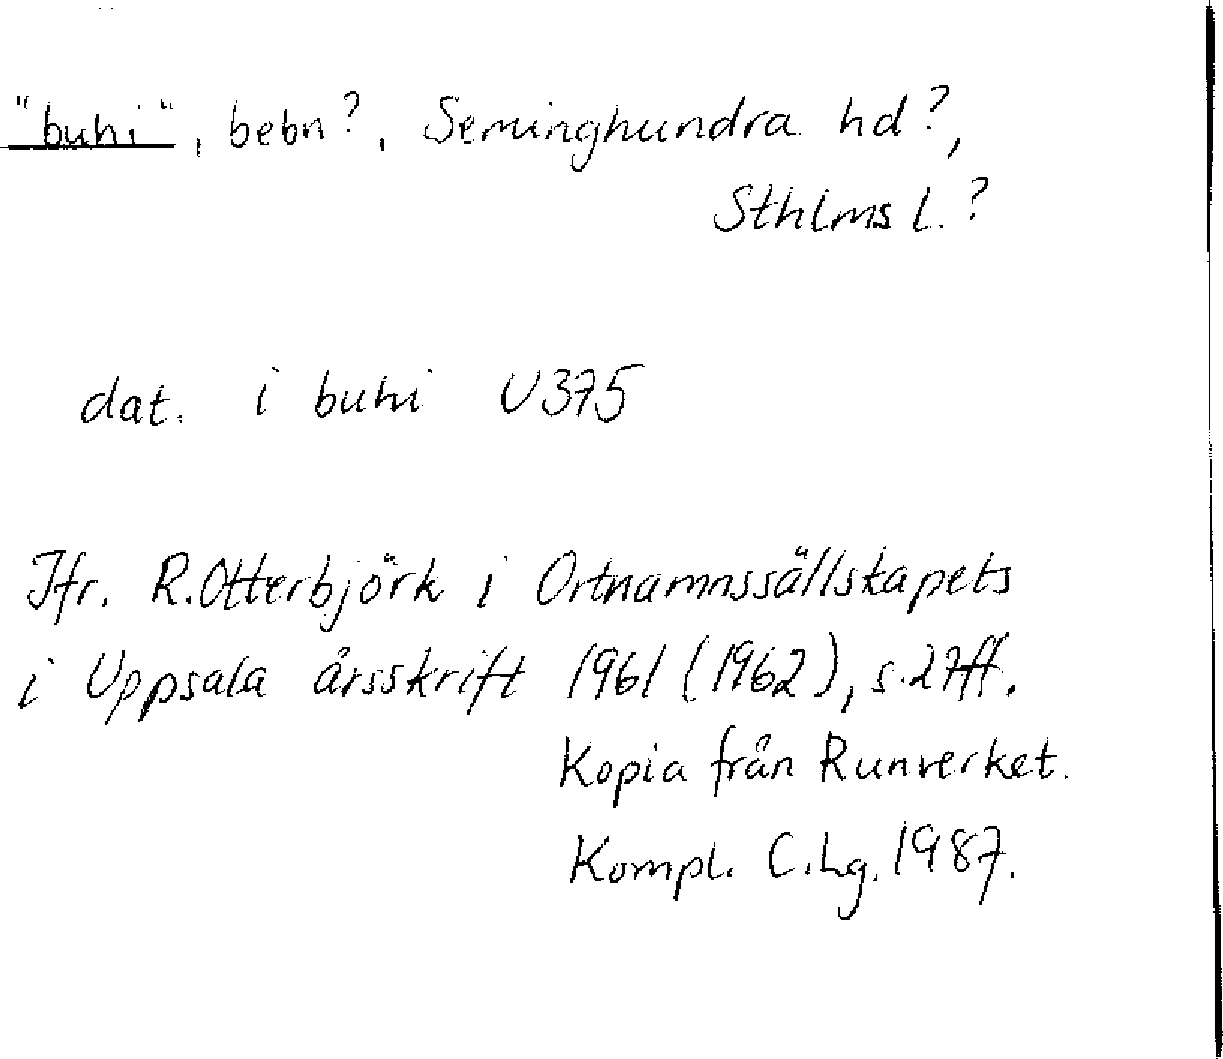 "buhi", bebn?, Seminghundra hd?,
Sthlms l.?
dat. i buhi U375
Jfr. R.Otterbjörk i Ortnamnssällskapets
i Uppsala årsskrift 1961 (1962), s.27ff.
Kopia från Runverket.
Kompl. C.Lg. 1987.